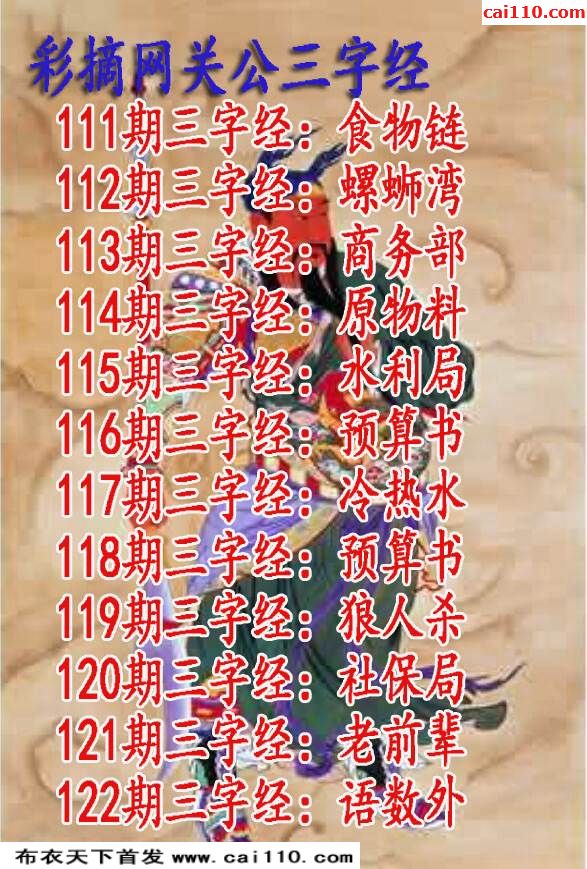 cai110.com
彩摘网关公三字经
111期三字经：食物链
112期三字经：螺蛳湾
113期三字经：商务部
114期三字经：原物料
115期三字经：水利局
116期三字经：预算书
117期三字经：冷热水
118期三字经：预算书
119期三字经：狼人杀
120期三字经：社保局
121期三字经：老前辈
122期三字经：语数外
布衣天下首发 www.cai110.com